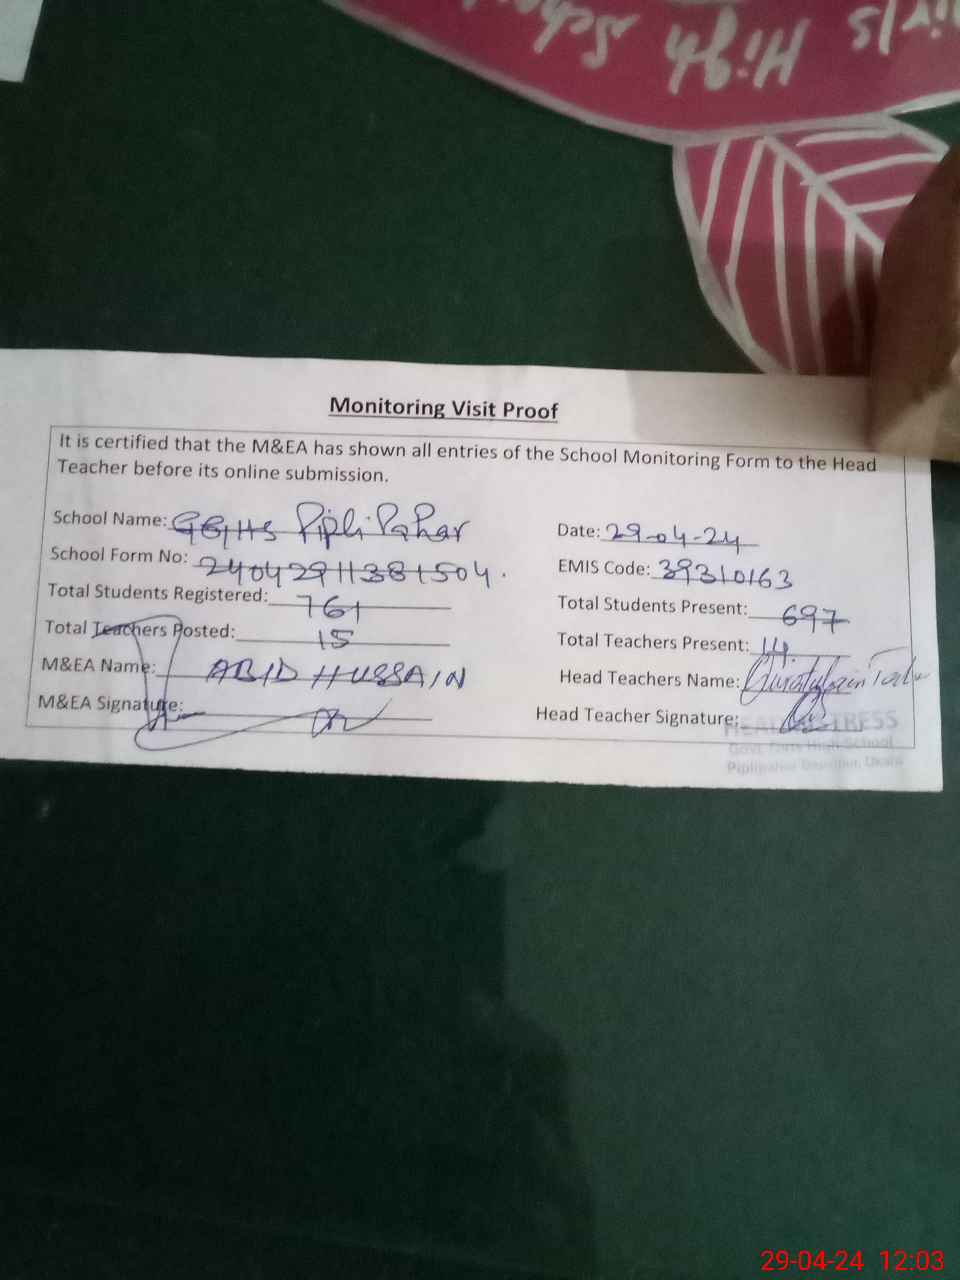 Girls High School
Monitoring Visit Proof
It is certified that the M&EA has shown all entries of the School Monitoring Form to the Head
Teacher before its online submission.
School Name: GGHS Pipli Pahar
Date: 29-04-24
School Form No: 24042911381504.
EMIS Code: 39310163
Total Students Registered: 761
Total Students Present: 697
Total Teachers Posted: 15
Total Teachers Present: 14.
M&EA Name: ABID HUSSAIN
Head Teachers Name:
M&EA Signature:
Head Teacher Signature:
HEADMISTRESS
Govt. Girls High School
29-04-24 12:03